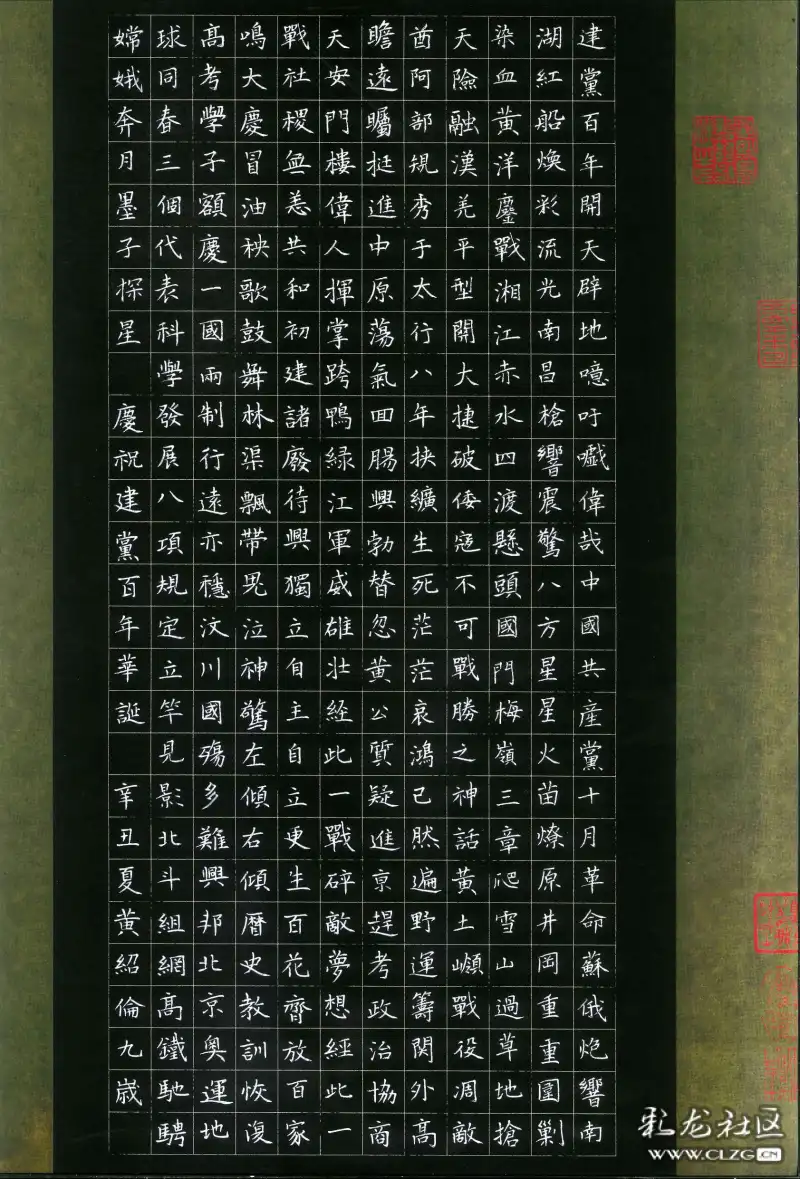 建黨百年開天辟地噫吁嚱偉哉中國共產黨十月革命蘇俄炮響南
湖紅船煥彩流光南昌槍響震驚八方星星火苗燎原井岡重重圍剿
染血黃洋鏖戰湘江赤水四渡懸頭國門梅嶺三章爬雪山過草地搶
天險融漢羌平型開大捷破倭寇不可戰勝之神話黃土巔戰役凋敵
酋阿部規秀于太行八年挾纊生死茫茫哀鴻已然遍野運籌関外高
瞻遠矚挺進中原蕩氣回腸興勃替忽黃公質疑進京趕考政治協商
天安門樓偉人揮掌跨鴨綠江軍威雄壯經此一戰碎敵夢想經此一
戰社稷無恙共和初建諸廢待興獨立自主自立更生百花齊放百家
鳴大慶冒油秧歌鼓舞林渠飄帶鬼泣神驚左傾右傾曆史教訓恢復
高考學子額慶一國兩制行遠亦穩汶川國殤多難興邦北京奧運地
球同春三個代表科學發展八項規定立竿見影北斗組網高鐵馳騁
嫦娥奔月墨子探星 慶祝建黨百年華誕 辛丑夏黃紹倫九歲
彩龙社区
WWW.CLZG.CN